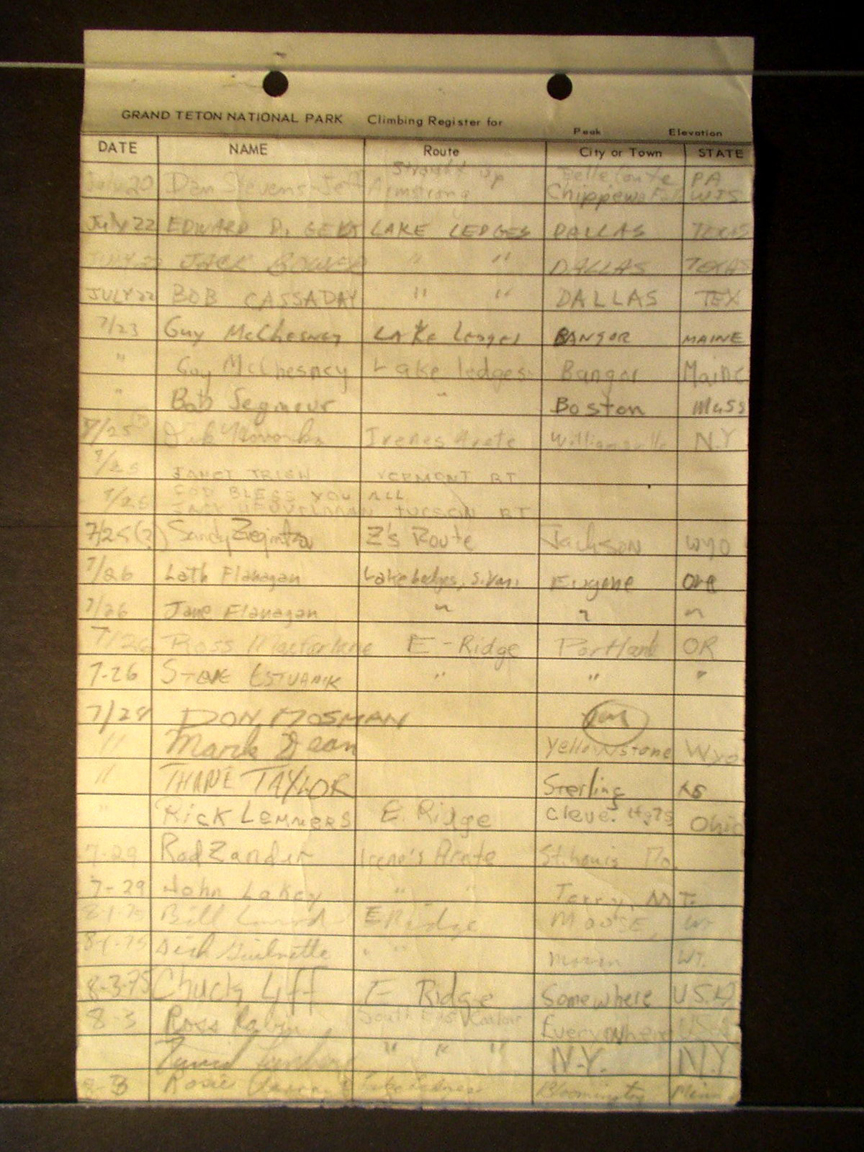 GRAND TETON NATIONAL PARK Climbing Register for
Peak Elevation
DATE NAME Route City or Town STATE
July 20 Dan Stevens-Jeff Armstrong Straight up Bellefonte PA
Chippewa WIS
July 22 EDWARD D. LAKE LEDGES DALLAS TEXAS
JULY 22 JACK " " DALLAS TEXAS
JULY 22 BOB CASSADAY " " DALLAS TEX
7/23 Guy McChesney Lake ledges BANGOR MAINE
" Guy McChesney Lake ledges Bangor Maine
" Bob Segmeur " Boston Mass
7/25 Irenes Arete Williamsville N.Y
7/25 JANET VERMONT
7/25 GOD BLESS YOU ALL
TUCSON
7/25(?) Sandy Z's Route Jackson WYO
7/26 Lath Flanagan Lake ledges, Eugene Ore
7/26 Jane Flanagan " " "
7/26 Ross Macfarlane E-Ridge Portland OR
7-26 STEVE " " "
7/29 DON MOSMAN
" Mark Dean Yellowstone Wyo
" THANE TAYLOR Sterling
" RICK LEMMERS E Ridge Cleve. Hgts Ohio
7-29 Rod Zander Irene's Arete St. Louis Mo.
7-29 John Lakey " " Terry, MT.
8-1-75 Bill E Ridge MOOSE, WY
8-1-75 Dick " " WY.
8-3-75 Chuck E Ridge Somewhere U.S.A
8-3 Ross Everywhere USA
" " " N.Y. N.Y.
8-3 Rosie Bloomington Minn